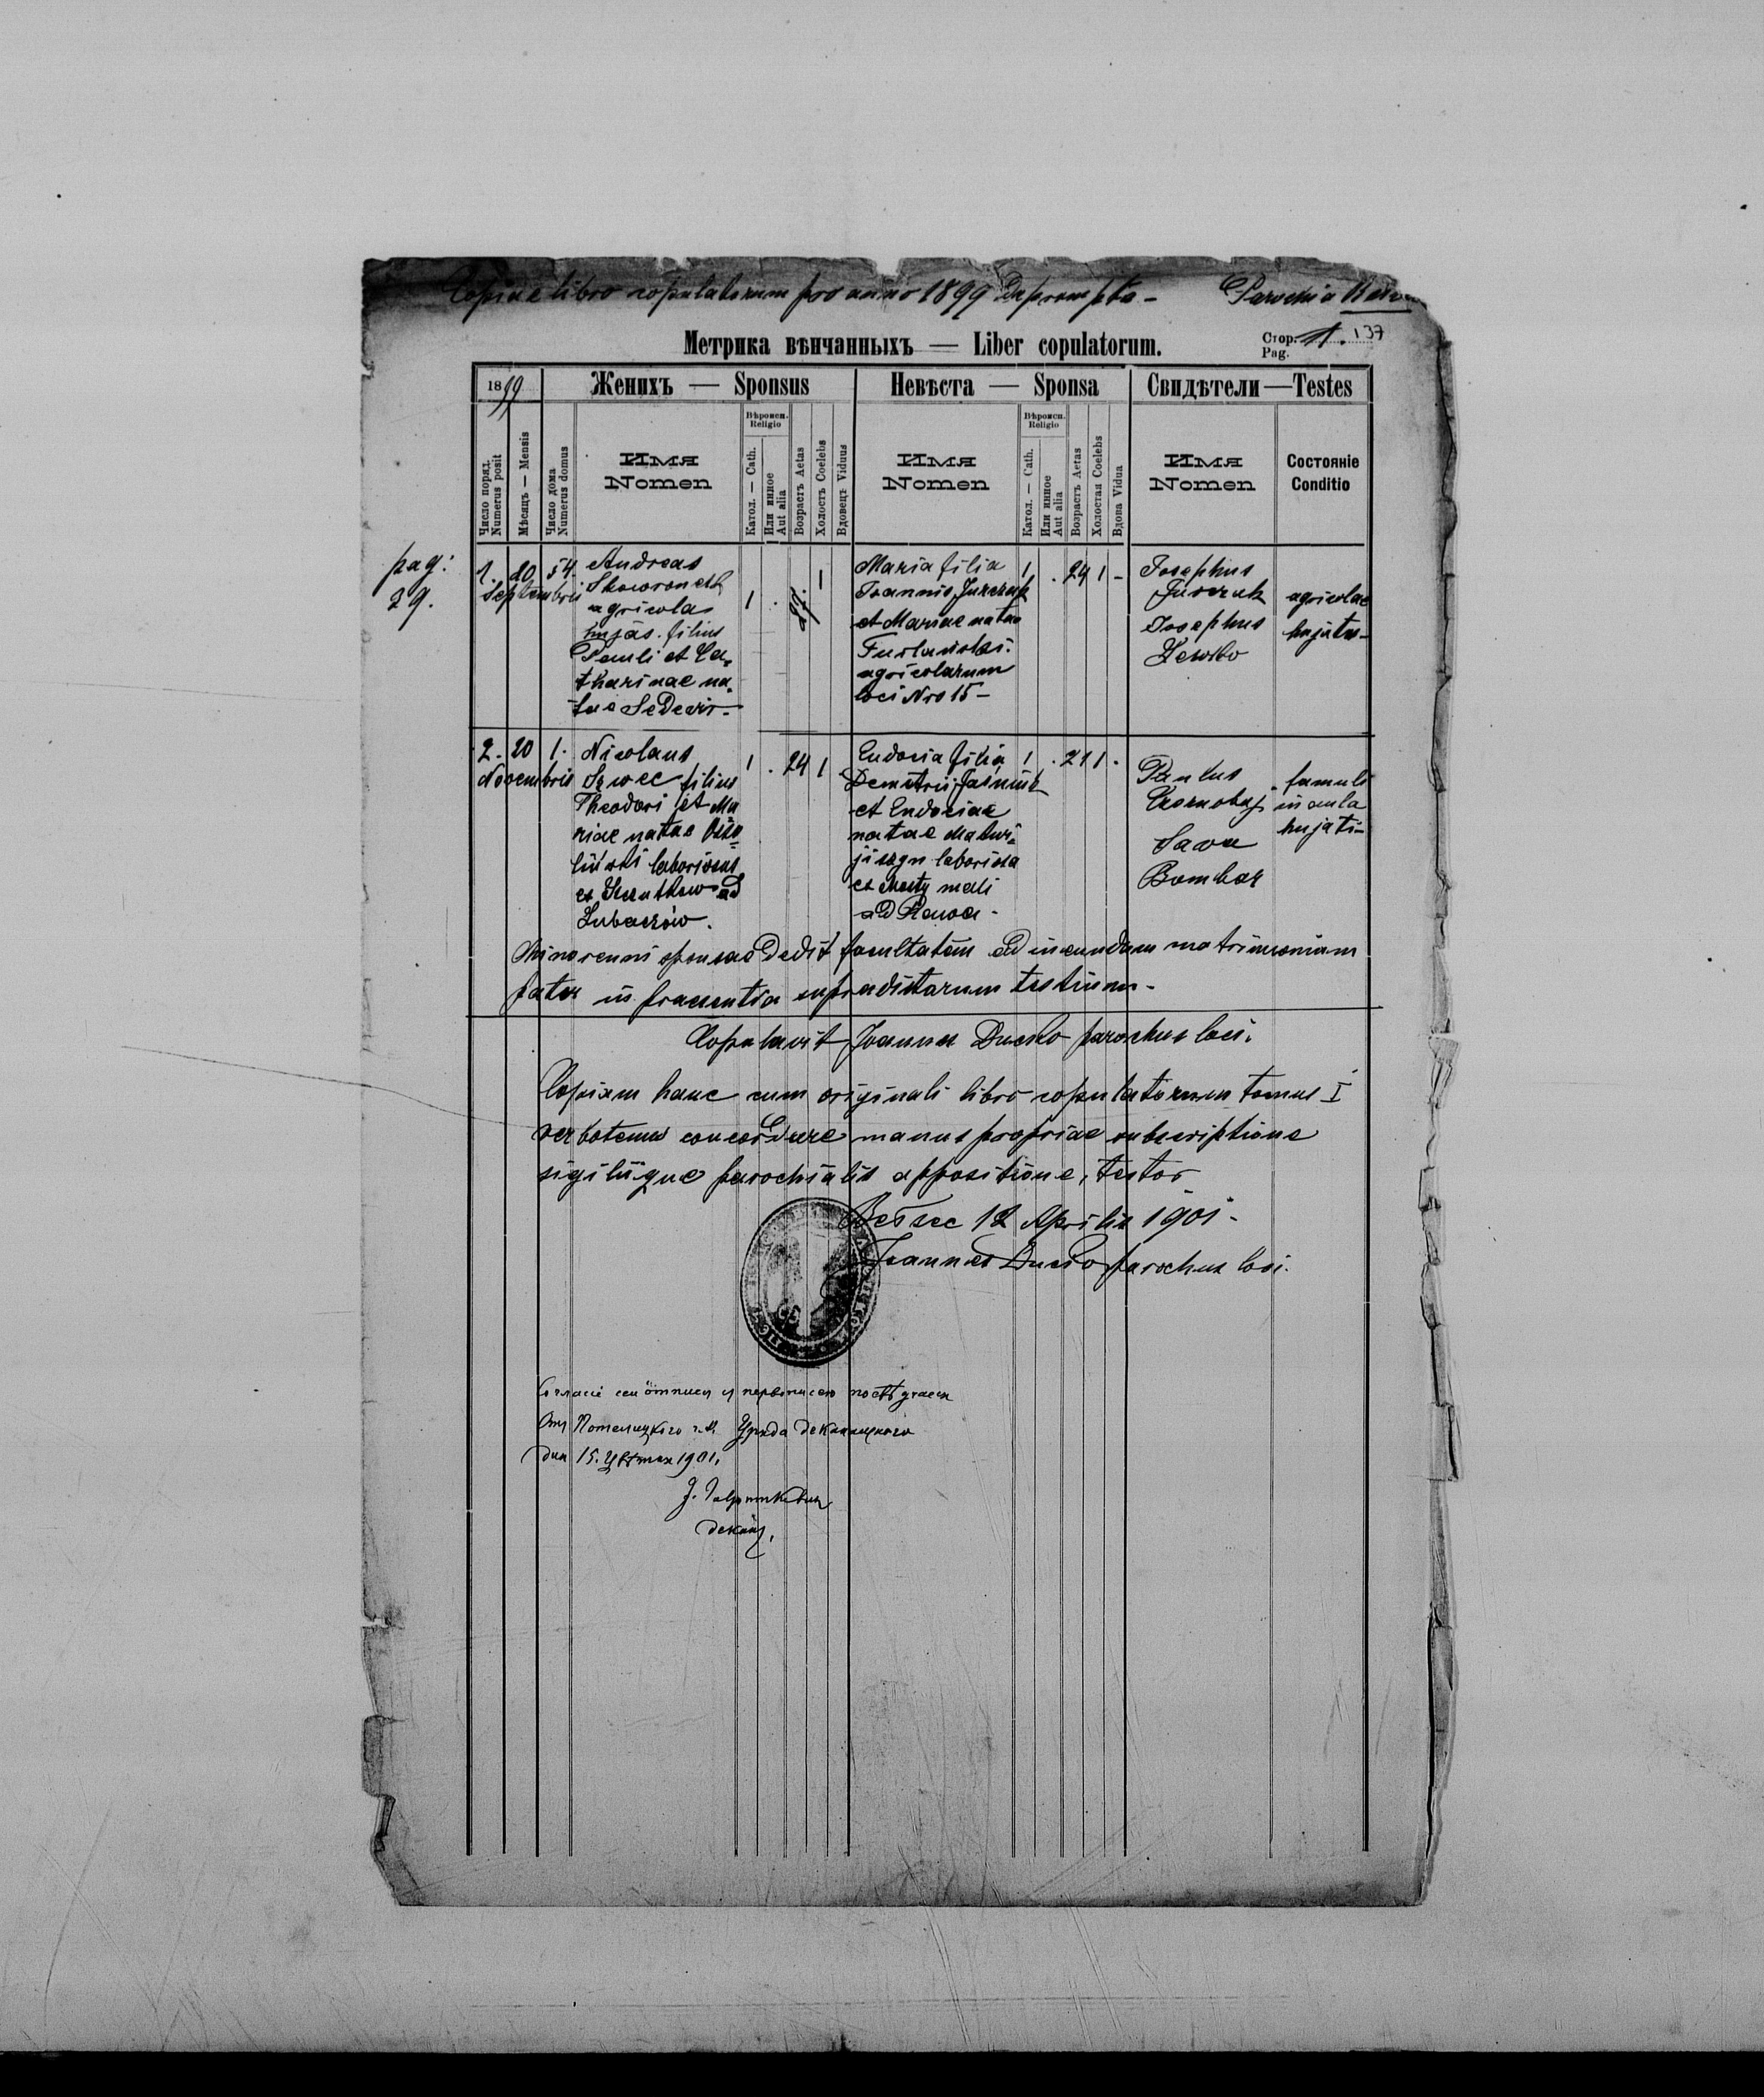 Copia e libro copulatorum pro anno 1899 deprompta - Parochia
Метрика вѣнчанныхъ — Liber copulatorum.
Стор. Pag. 1. 137
1899 Женихъ — Sponsus Невѣста — Sponsa Свидѣтели — Testes
Число поряд. Numerus posit
Мѣсяць — Mensis
Число дома Numerus domus
Имя Nomen
Вѣроисп. Religio
Катол. — Cath.
Или инное Aut alia
Возрастъ Aetas
Холостъ Coelebs
Вдовецъ Viduus
Имя Nomen
Вѣроисп. Religio
Катол. — Cath.
Или инное Aut alia
Возрастъ Aetas
Холостая Coelebs
Вдова Vidua
Имя Nomen
Состояніе Conditio
pag:
29.
1. 20 54.
Septembris
Andreas
Skowronek
agricola
hujas. filius
Pauli et Ca-
tharinae na-
tae
1 . 27. 1
Maria filia
Joannis Jurczak
et Mariae natae
agricolarum
loci Nro 15 -
1 . 24 1 -
Josephus
Jurczak
Josephus
agricolae
hujates -
2. 20 1.
Novembris
Nicolaus
Szwec filius
Theodori et Ma
riae natae
laboriosus
ad
Lubaczów.
1 . 24 1
Eudocia filia
Demetrii
et Eudociae
natae
ad Rawa -
1 . 21 1 .
Paulus
Sawa
Bombar
famuli
in aula
hujati -
Minorenni sponsae dedit facultatem ad ineundum matrimonium
pater in praesentia supradictorum testium -
Copulavit Joannes parochus loci.
Copiam hanc cum originali libro copulatorum tomus I
verbotenus concordare manus propriae subscriptione
sigillique parochialis appositione, testor
Bełzec 12 Aprilis 1901 -
Joannes parochus loci.
дня 15. Цвѣтня 1901.
деканъ.